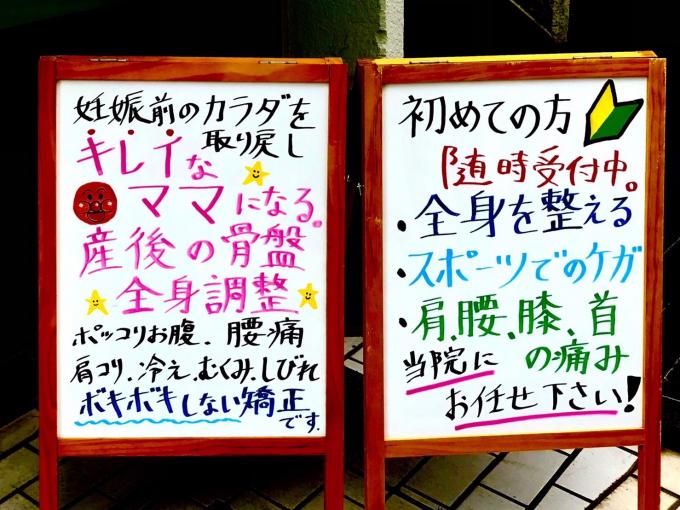 妊娠前のカラダを
取り戻し
キレイな
ママになる。
産後の骨盤
全身調整
ポッコリお腹、腰痛
肩コリ、冷え、むくみ、しびれ
ボキボキしない矯正
です。
初めての方
随時受付中。
・全身を整える
・スポーツでのケガ
・肩、腰、膝、首
の痛み
当院に
お任せ下さい!